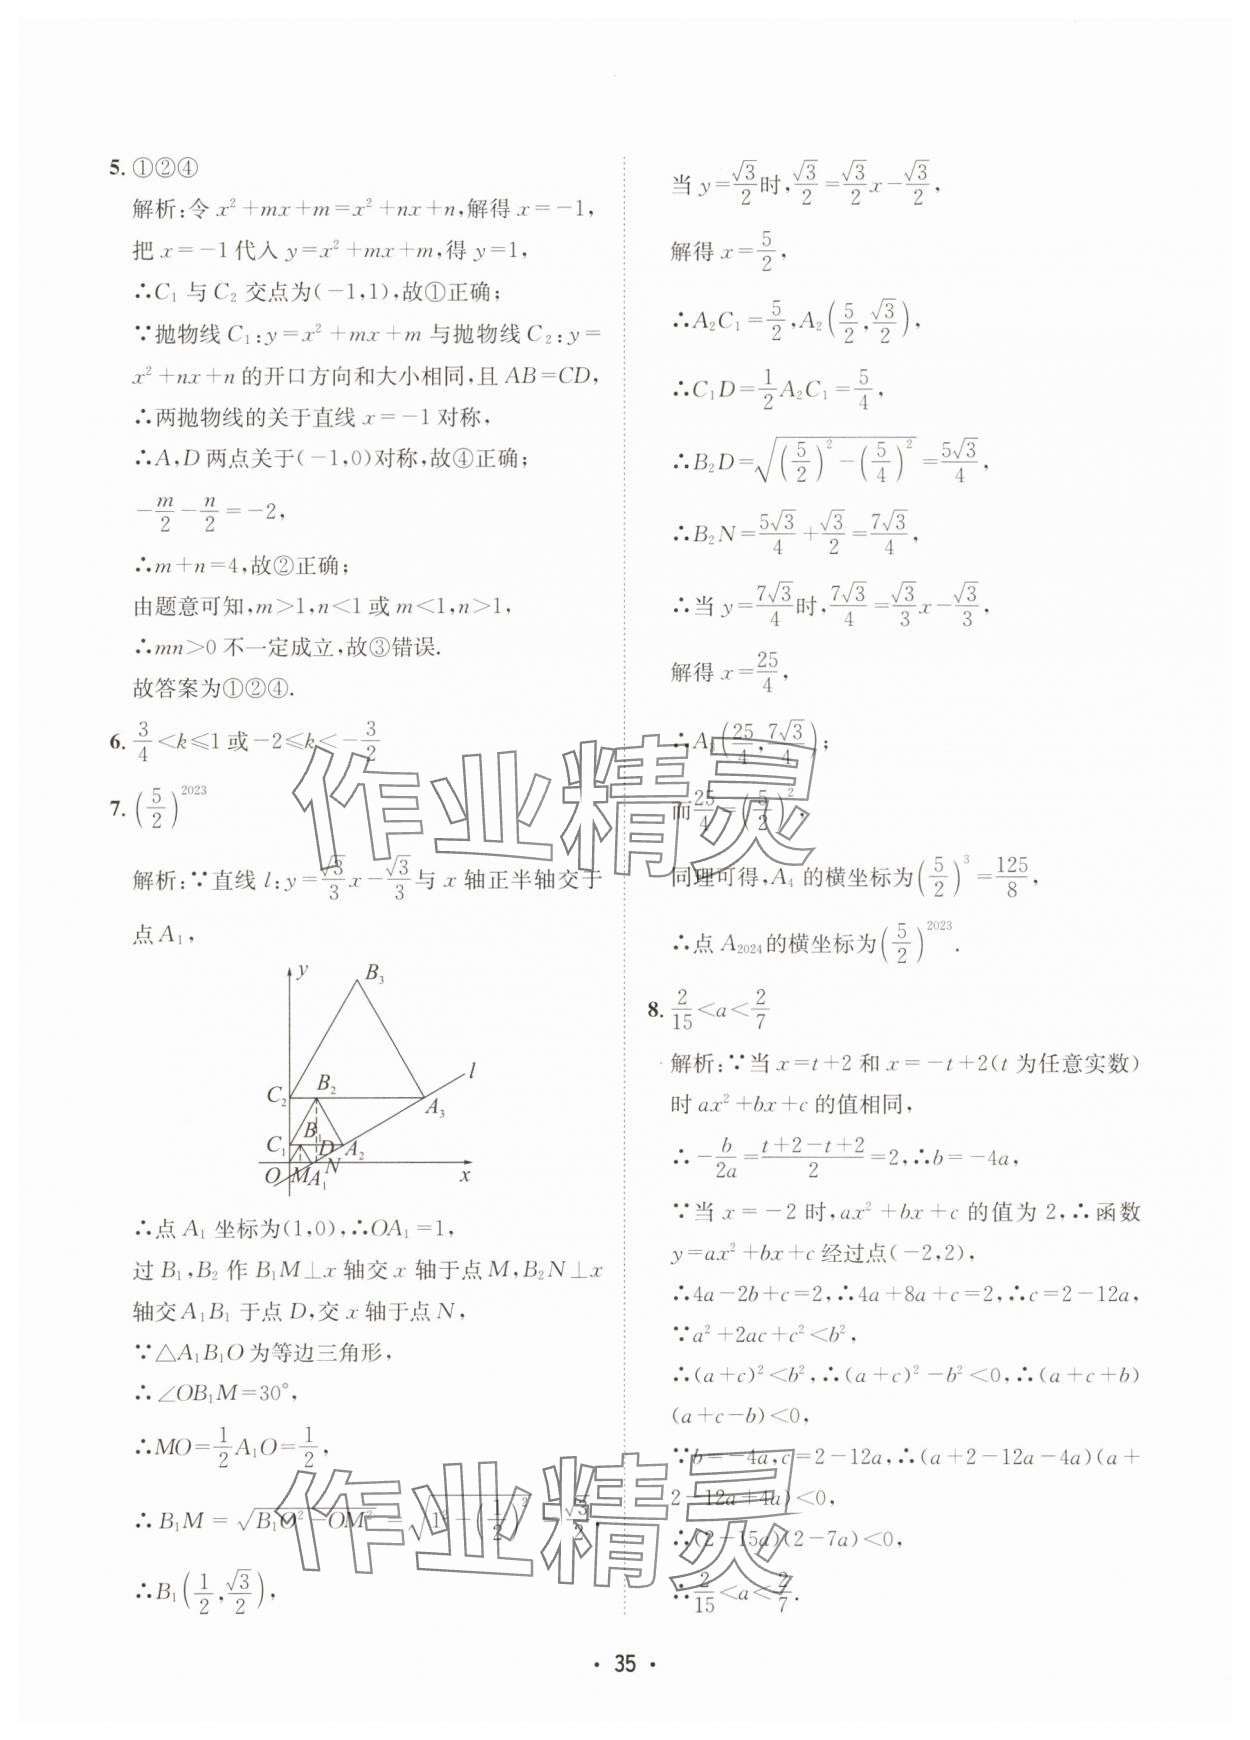 5. ①②④
解析:令 x²+mx+m=x²+nx+n,解得 x=-1,
把 x=-1代入 y=x²+mx+m,得 y=1,
∴C₁ 与 C₂ 交点为(-1,1),故①正确;
∵抛物线 C₁:y=x²+mx+m 与抛物线 C₂:y=
x²+nx+n 的开口方向和大小相同,且 AB=CD,
∴两抛物线的关于直线 x=-1对称,
∴A,D 两点关于(-1,0)对称,故④正确;
-m/2-n/2=-2,
∴m+n=4,故②正确;
由题意可知,m>1,n<1或 m<1,n>1,
∴mn>0不一定成立,故③错误.
故答案为①②④.
6. 3/4<k≤1或-2≤k≤-3/2
7. (5/2)²⁰²³
解析:∵直线 l:y=√3/3x-√3/3与 x 轴正半轴交于
点A₁,
y
B₃
l
C₂
B₂
A₃
C₁
B₁
D
A₂
O
M
A₁
N
x
∴点 A₁ 坐标为(1,0),∴OA₁=1,
过 B₁,B₂ 作 B₁M⊥x 轴交 x 轴于点 M,B₂N⊥x
轴交A₁B₁ 于点 D,交 x 轴于点 N,
∵△A₁B₁O 为等边三角形,
∴∠OB₁M=30°,
∴MO=1/2A₁O=1/2,
∴B₁M=√(B₁O²-OM²)=√(1²-(1/2)²)=√3/2,
∴B₁(1/2,√3/2),
当 y=√3/2时,√3/2=√3/2x-√3/2,
解得 x=5/2,
∴A₂C₁=5/2,A₂(5/2,√3/2),
∴C₁D=1/2A₂C₁=5/4,
∴B₂D=√((5/2)²-(5/4)²)=5√3/4,
∴B₂N=5√3/4+√3/2=7√3/4,
∴当 y=7√3/4时,7√3/4=√3/3x-√3/3,
解得 x=25/4,
∴A₃(25/4,7√3/4);
而25/4=(5/2)²,
同理可得,A₄ 的横坐标为(5/2)³=125/8,
∴点 A₂₀₂₄的横坐标为(5/2)²⁰²³.
8. 2/15<a<2/7
解析:∵当 x=t+2和 x=-t+2(t 为任意实数)
时 ax²+bx+c 的值相同,
∴-b/2a=(t+2-t+2)/2=2,∴b=-4a,
∵当 x=-2时,ax²+bx+c 的值为 2,∴函数
y=ax²+bx+c 经过点(-2,2),
∴4a-2b+c=2,∴4a+8a+c=2,∴c=2-12a,
∵a²+2ac+c²<b²,
∴(a+c)²<b²,∴(a+c)²-b²<0,∴(a+c+b)
(a+c-b)<0,
∵b=-4a,c=2-12a,∴(a+2-12a-4a)(a+
2-12a+4a)<0,
∴(2-15a)(2-7a)<0,
∴2/15<a<2/7.
作业精灵
作业精灵
• 35 •